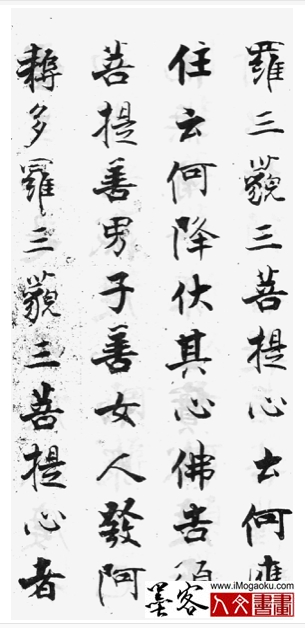 羅三藐三菩提心云何應
住云何降伏其心佛告須
菩提善男子善女人發阿
耨多羅三藐三菩提心者
www.iMogaoku.com
墨客
人文書畫